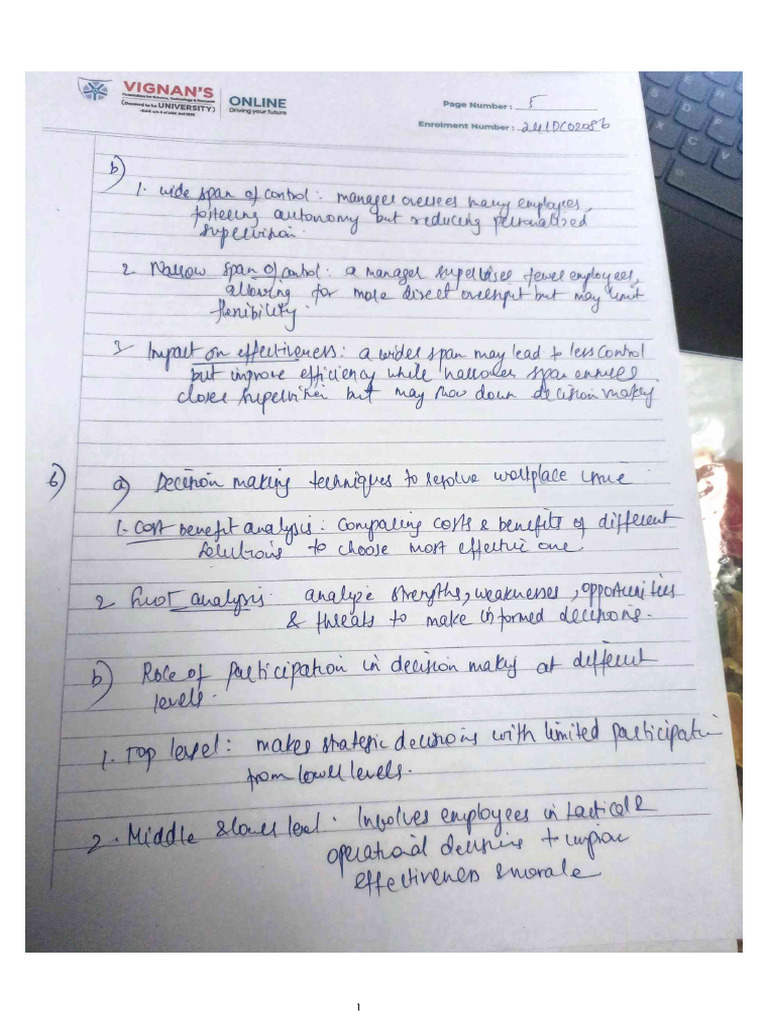 VIGNAN'S
Foundation for Science, Technology & Research
(Deemed to be UNIVERSITY)
-Estd. u/s 3 of UGC Act 1956
ONLINE
Driving your future
Page Number : 5
Enrolment Number : 241DC02086
b)
1. wide span of control : manager oversees many employees,
fostering autonomy but reducing personalized
supervision.
2. Narrow span of control : a manager supervises fewer employees,
allowing for more direct oversight but may limit
flexibility.
3 Impact on effectiveness : a wider span may lead to less control
but improve efficiency while narrower span ensures
closer supervision but may slow down decision making
6) a) Decision making techniques to resolve workplace issue
1. Cost benefit analysis : Comparing costs & benefits of different
solutions to choose most effective one
2 Swot analysis. analyze strengths, weaknesses, opportunities
& threats to make informed decisions.
b) Role of participation in decision making at different
levels.
1. Top level : makes strategic decisions with limited participation
from lower levels.
2. Middle & lower level. Involves employees in tactical &
operational decisions to improve
effectiveness & morale
1